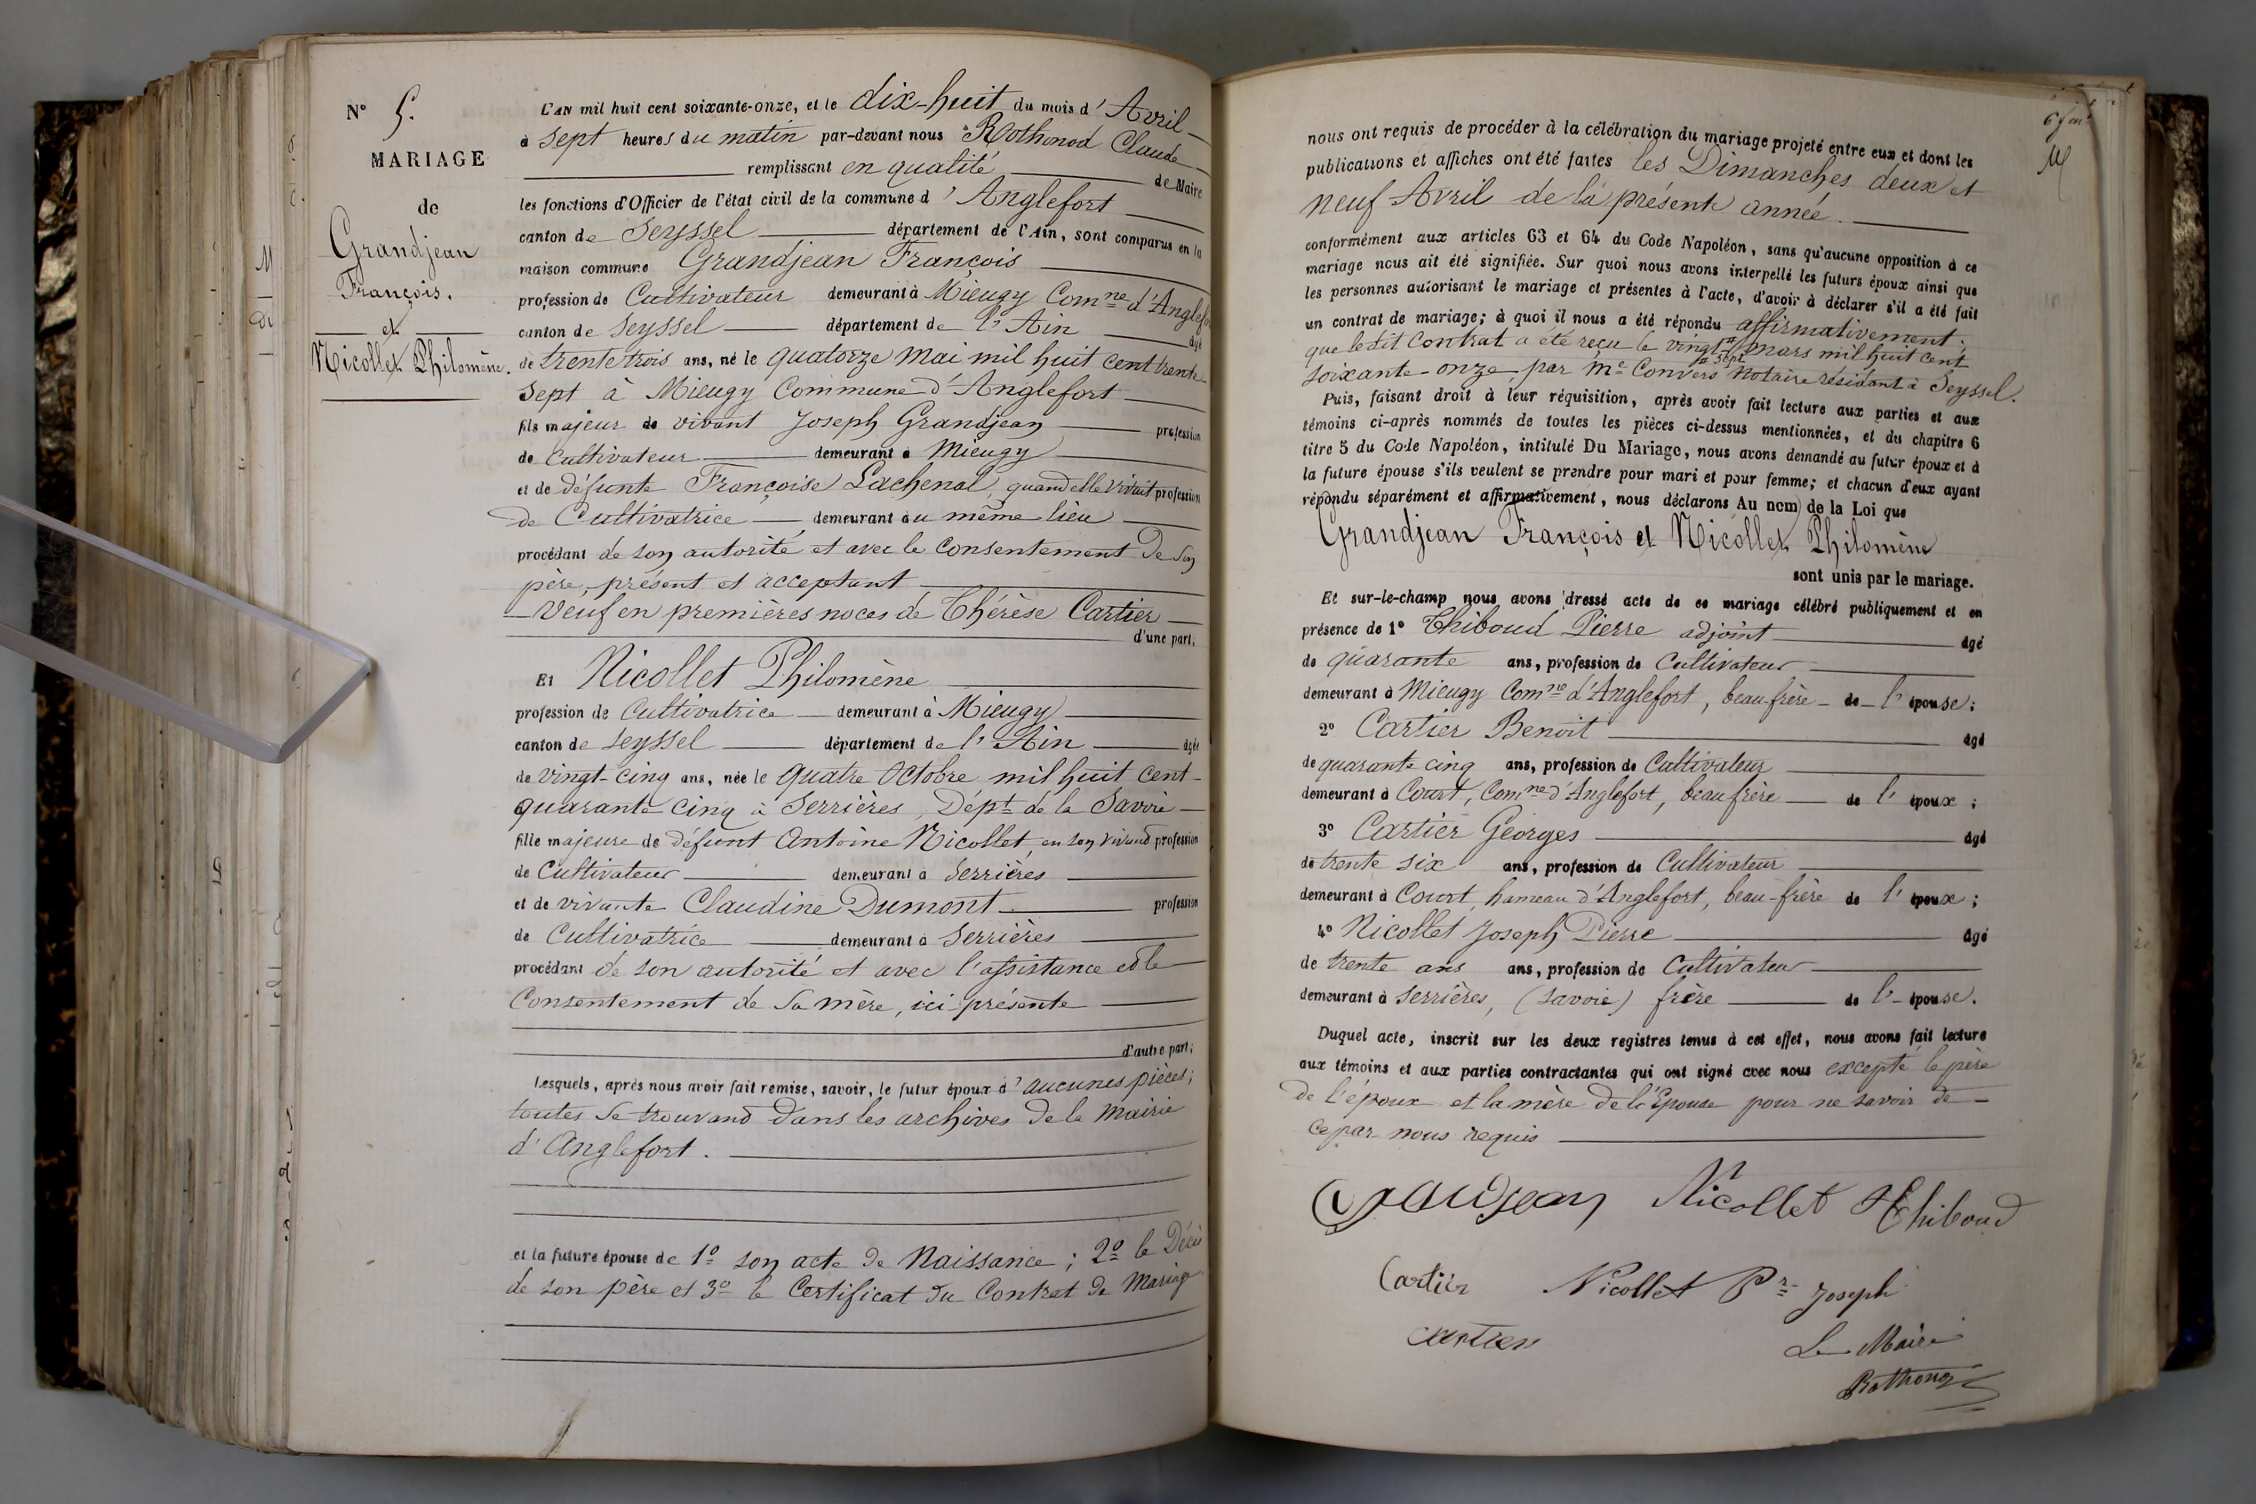 N° 5.
MARIAGE
de
Grandjean
François.
et
Nicollet Philomène.
L'AN mil huit cent soixante-onze, et le dix-huit du mois d'Avril
à sept heures du matin par-devant nous Rothonod Claude
remplissant en qualité de Maire
les fonctions d'Officier de l'état civil de la commune d'Anglefort
canton de Seyssel département de l'Ain, sont comparus en la
maison commune Grandjean François
profession de Cultivateur demeurant à Mieugy Comne d'Anglefort
canton de Seyssel département de l'Ain âgé
de trente trois ans, né le quatorze Mai mil huit cent trente
sept à Mieugy Commune d'Anglefort
fils majeur de vivant Joseph Grandjean profession
de Cultivateur demeurant à Mieugy
et de défunte Françoise Lachenal, quand elle vivait profession
de Cultivatrice demeurant au même lieu
procédant de son autorité et avec le Consentement de son
père, présent et acceptant
Veuf en premières noces de Thérèse Cartier
d'une part;
Et Nicollet Philomène
profession de Cultivatrice demeurant à Mieugy
canton de Seyssel département de l'Ain âgée
de vingt-cinq ans, née le quatre Octobre mil huit cent
quarante cinq à Serrières, Dépt de la Savoie
fille majeure de défunt Antoine Nicollet, en son vivant profession
de Cultivateur demeurant à Serrières
et de vivante Claudine Dumont profession
de Cultivatrice demeurant à Serrières
procédant de son autorité et avec l'assistance et le
Consentement de sa mère, ici présente
d'autre part;
Lesquels, après nous avoir fait remise, savoir, le futur époux d'aucunes pièces;
toutes se trouvand dans les archives de la Mairie
d'Anglefort.
et la future épouse de 1° son acte de Naissance; 2° le Décès
de son père et 3° le Certificat du Contrat de Mariage
nous ont requis de procéder à la célébration du mariage projeté entre eux et dont les
publications et affiches ont été faites les Dimanches deux et
neuf Avril de la présente année.
conformément aux articles 63 et 64 du Code Napoléon, sans qu'aucune opposition à ce
mariage nous ait été signifiée. Sur quoi nous avons interpellé les futurs époux ainsi que
les personnes autorisant le mariage et présentes à l'acte, d'avoir à déclarer s'il a été fait
un contrat de mariage; à quoi il nous a été répondu affirmativement.
que le dit Contrat a été reçu le vingt sept mars mil huit cent
soixante-onze par Me Convers Notaire résidant à Seyssel.
Puis, faisant droit à leur réquisition, après avoir fait lecture aux parties et aux
témoins ci-après nommés de toutes les pièces ci-dessus mentionnées, et du chapitre 6
titre 5 du Code Napoléon, intitulé Du Mariage, nous avons demandé au futur époux et à
la future épouse s'ils veulent se prendre pour mari et pour femme; et chacun d'eux ayant
répondu séparément et affirmativement, nous déclarons Au nom de la Loi que
Grandjean François et Nicollet Philomène
sont unis par le mariage.
Et sur-le-champ nous avons dressé acte de ce mariage célébré publiquement et en
présence de 1° Thiboud Pierre adjoint âgé
de quarante ans, profession de Cultivateur
demeurant à Mieugy Comne d'Anglefort, beau-frère de l'épouse;
2° Cartier Benoît âgé
de quarante cinq ans, profession de Cultivateur
demeurant à Court, Comne d'Anglefort, beau frère de l'époux;
3° Cartier Georges âgé
de trente six ans, profession de Cultivateur
demeurant à Court, hameau d'Anglefort, beau-frère de l'époux;
4° Nicollet Joseph Pierre âgé
de trente ans ans, profession de Cultivateur
demeurant à Serrières, (Savoie) frère de l'épouse.
Duquel acte, inscrit sur les deux registres tenus à cet effet, nous avons fait lecture
aux témoins et aux parties contractantes qui ont signé avec nous excepté le père
de l'époux et la mère de l'Epouse pour ne savoir de
ce par nous requis
Grandjean Nicollet Thiboud
Cartier Nicollet Pre Joseph
Cartier Le Maire
Rothonod